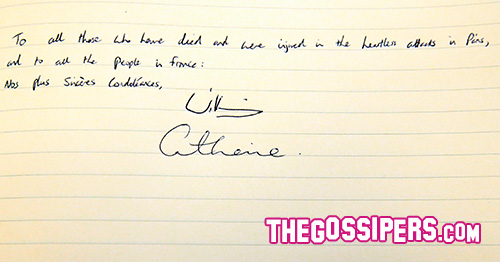 To all those who have died and were injured in the heartless attacks in Paris,
and to all the people in France:
Nos plus Sincères Condoléances,
Catherine.
THEGOSSIPERS.COM